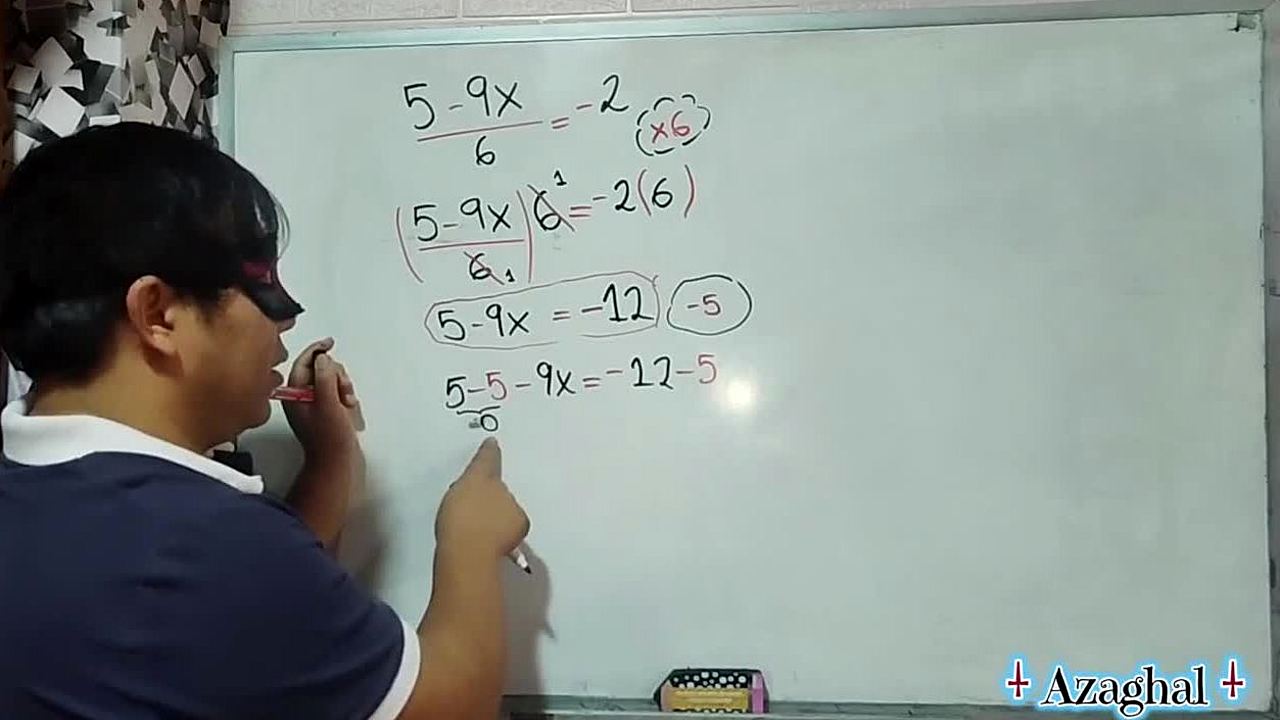 5-9x/6 = -2 ×6
(5-9x/6 1) 6 1 = -2(6)
5-9x = -12 -5
5-5-9x = -12-5
0
Azaghal